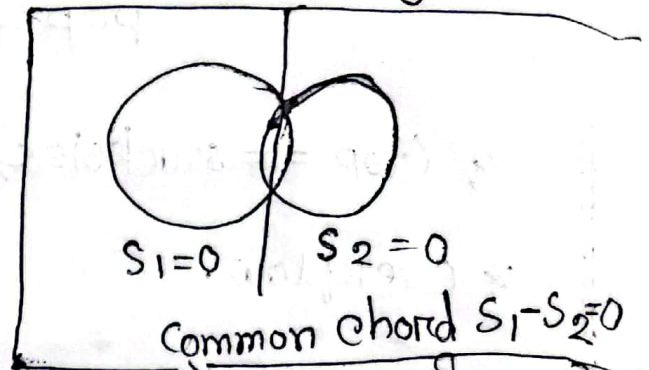 S1=0
S2=0
Common chord S1-S2=0